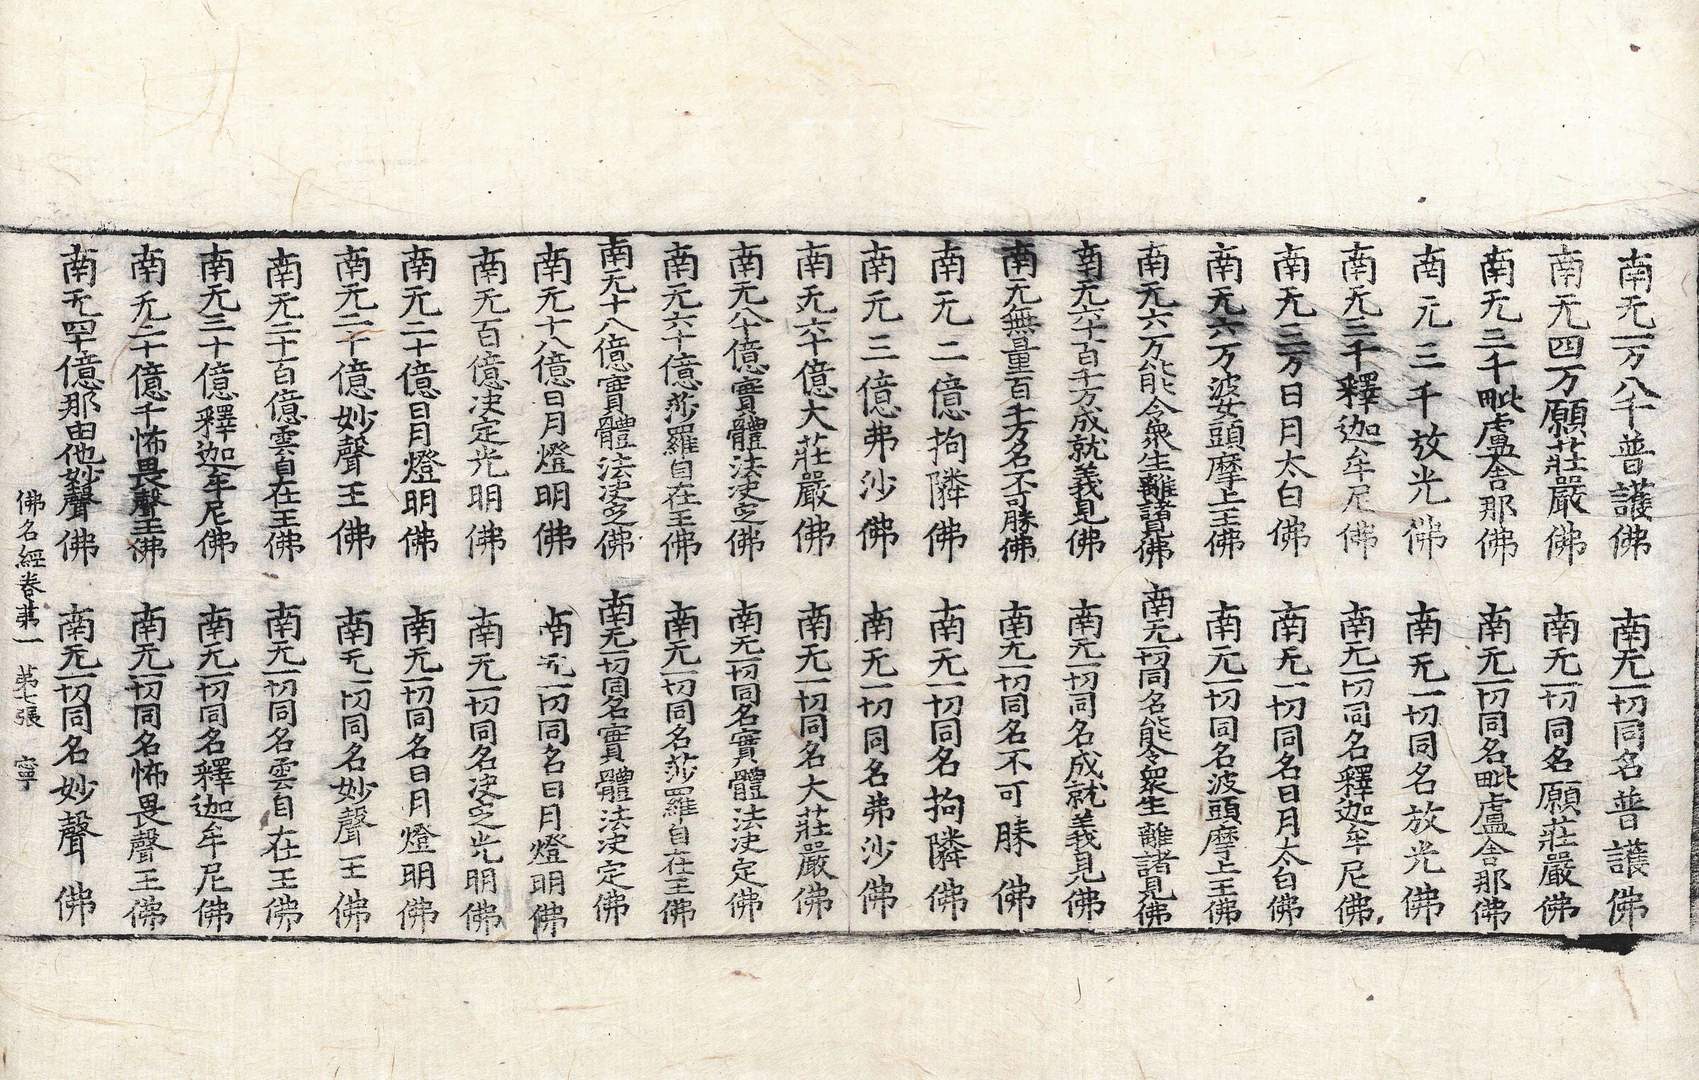 南无一万八千普護佛 南无一切同名普護佛
南无四万願莊嚴佛 南无一切同名願莊嚴佛
南无三千毗盧舎那佛 南无一切同名毗盧舎那佛
南无三千放光佛 南无一切同名放光佛
南无三千釋迦牟尼佛 南无一切同名釋迦牟尼佛
南无三万日月太白佛 南无一切同名日月太白佛
南无六万波女頭摩上王佛 南无一切同名波頭摩上王佛
南无六万能令衆生離諸見佛 南无一切同名能令衆生離諸見佛
南无六十百千万成就義見佛 南无一切同名成就義見佛
南无無量百千万名不可勝佛 南无一切同名不可勝佛
南无二億拘隣佛 南无一切同名拘隣佛
南无三億弗沙佛 南无一切同名弗沙佛
南无六十億大莊嚴佛 南无一切同名大莊嚴佛
南无八十億實體法决定佛 南无一切同名實體法决定佛
南无六十億莎羅自在王佛 南无一切同名莎羅自在王佛
南无十八億實體法决定佛 南无一切同名實體法决定佛
南无十八億日月燈明佛 南无一切同名日月燈明佛
南无百億决定光明佛 南无一切同名决定光明佛
南无二十億日月燈明佛 南无一切同名日月燈明佛
南无二十億妙聲王佛 南无一切同名妙聲王佛
南无二十百億雲自在王佛 南无一切同名雲自在王佛
南无三十億釋迦牟尼佛 南无一切同名釋迦牟尼佛
南无二十億千怖畏聲王佛 南无一切同名怖畏聲王佛
南无四十億那由他妙聲佛 南无一切同名妙聲佛
佛名經卷苐一 苐七張 寧